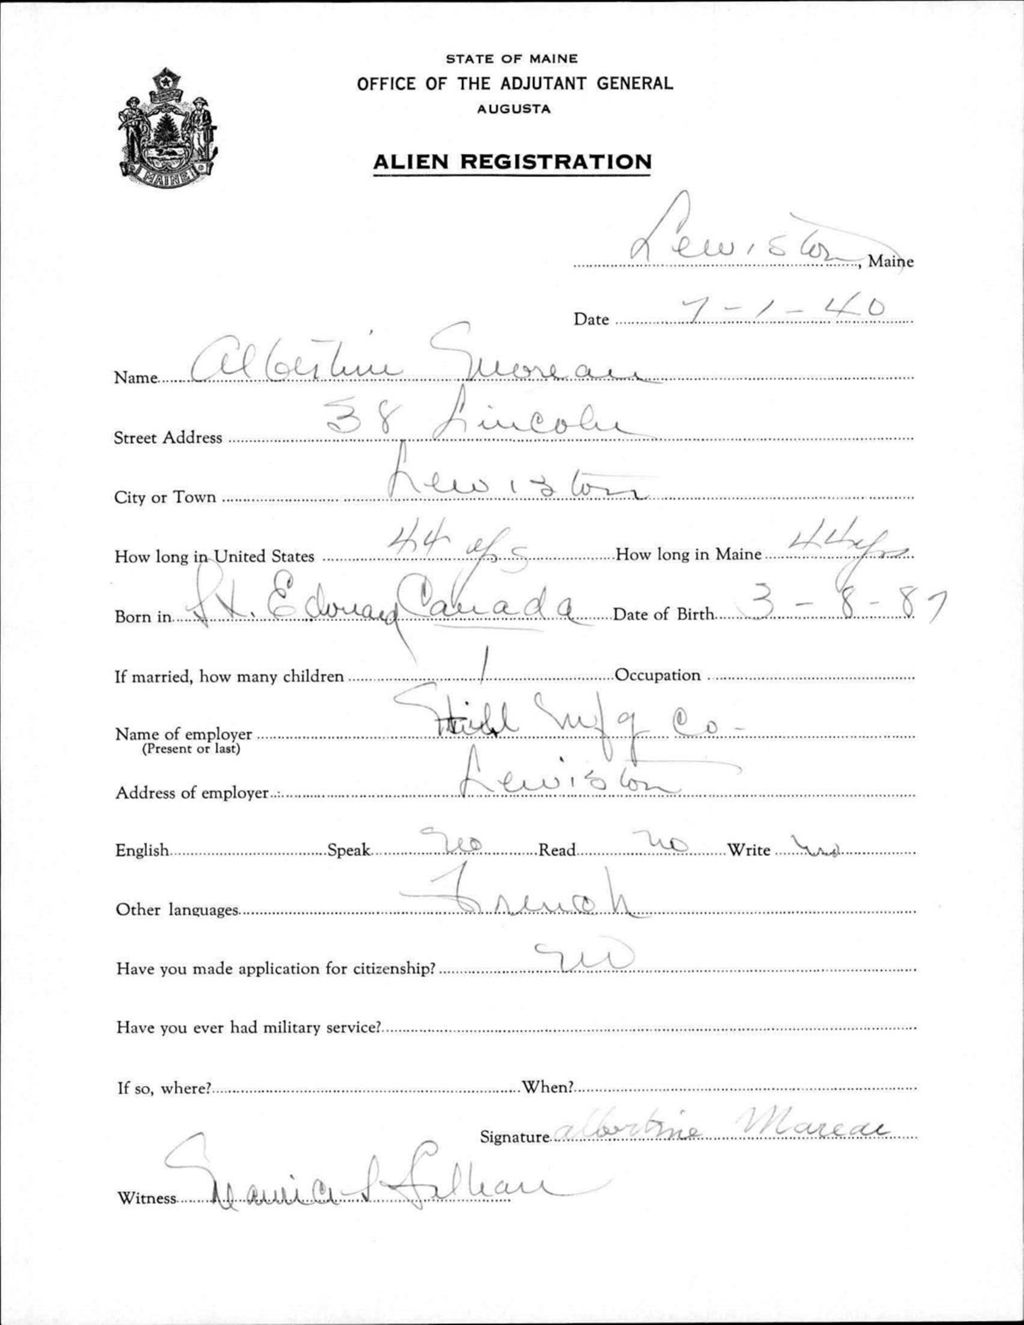 STATE OF MAINE
OFFICE OF THE ADJUTANT GENERAL
AUGUSTA
ALIEN REGISTRATION
MAINE
Lewiston, Maine
Date 7-1-40
Name Albertine Moreau
Street Address 38 Lincoln
City or Town Lewiston
How long in United States 44 yrs How long in Maine 44 yrs
Born in St. Edouard Canada Date of Birth 3-8-87
If married, how many children 1 Occupation
Name of employer Hill Mfg Co-
(Present or last)
Address of employer Lewiston
English Speak no Read no Write no
Other languages French
Have you made application for citizenship? no
Have you ever had military service?
If so, where? When?
Signature albertine Mareau
Witness